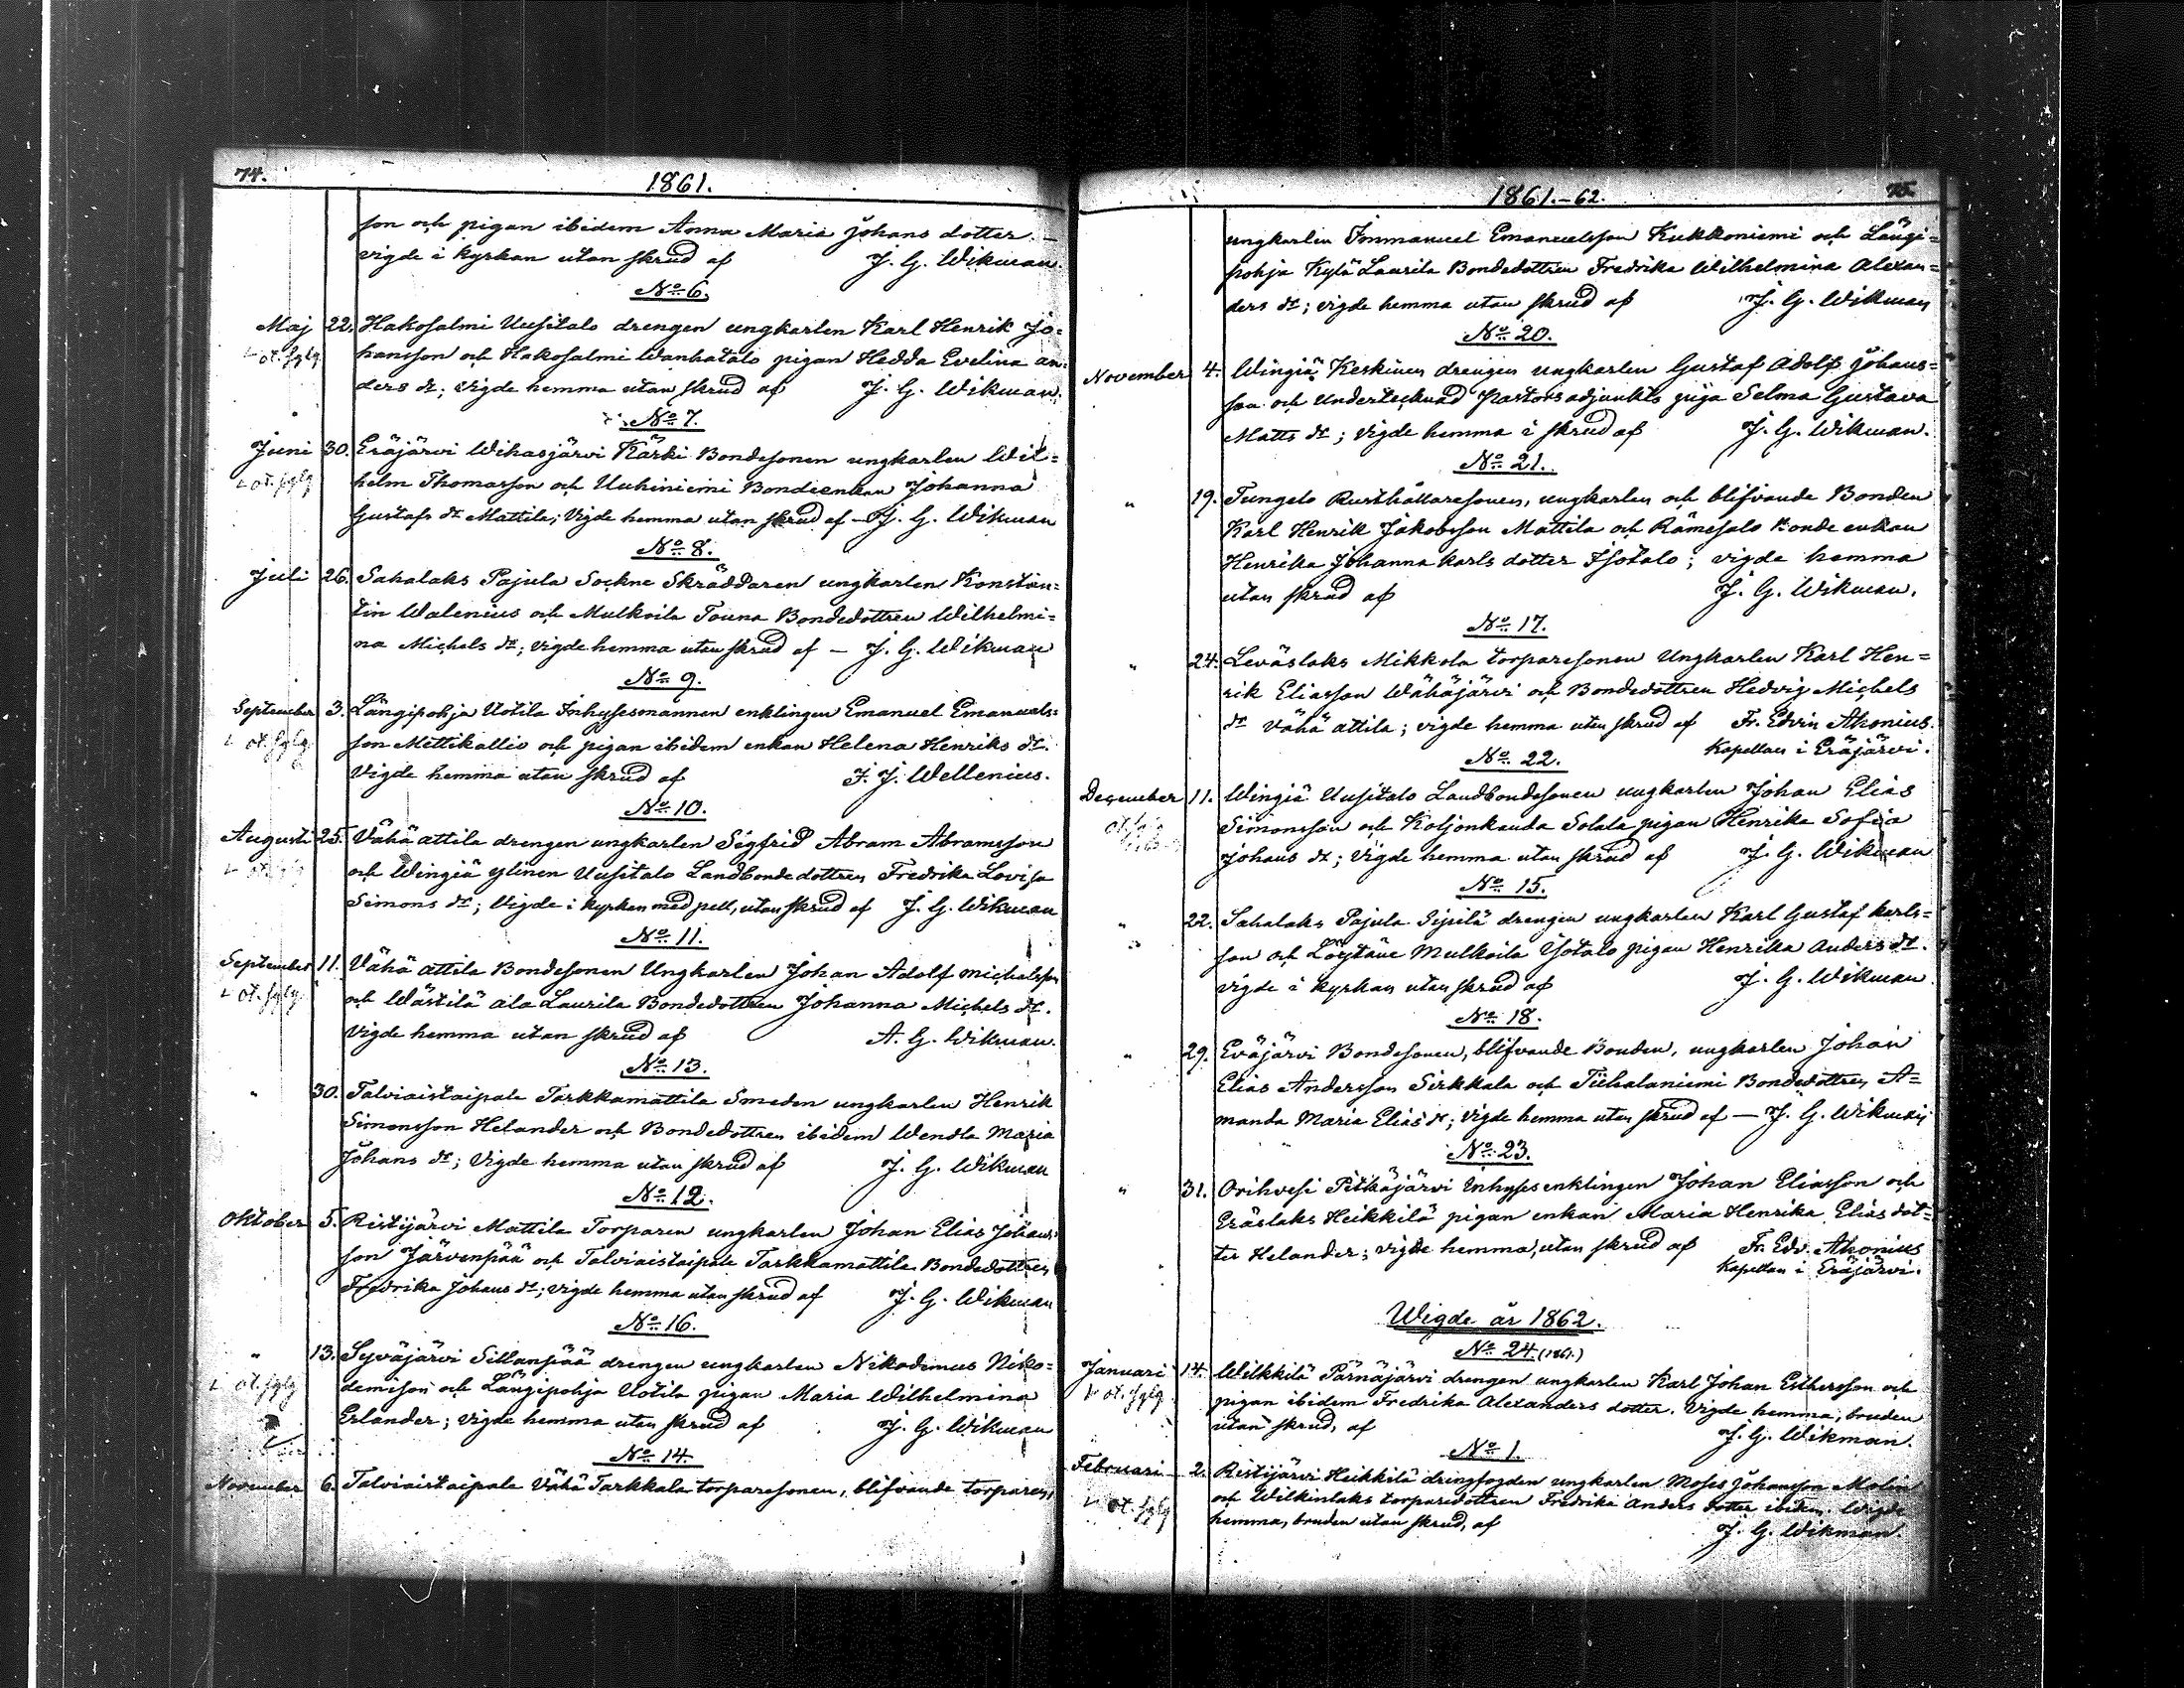 74.
1861.
son och pigan ibidem Anna Maria Johans dotter. —
vigde i kyrkan utan skrud af J. G. Wikman.
No 6.
Maj 22. Hakosalmi Uusitalo drengen ungkarlen Karl Henrik Jo=
hansson och Hakosalmi Wanhatalo pigan Hedda Evelina An=
ders dr; vigde hemma utan skrud af J. G. Wikman.
No 7.
Juni 30. Eräjärvi Wihasjärvi Kärki Bondesonen ungkarlen Wil=
helm Thomasson och Uuhiniemi Bondeenkan Johanna
Gustafs dr Mattila; Vigde hemma utan skrud af — J. G. Wikman
No 8.
Juli 26. Sahalaks Pajula Sockne Skräddaren ungkarlen Konstan=
tin Walenius och Mulkoila Touna Bondedottren Wilhelmi=
na Michels dr; vigde hemma utan skrud af — J. G. Wikman
No 9.
September 3. Längipohja Uotila Inhysesmannen enklingen Emanuel Emanuels=
son Mettikallio och pigan ibidem enkan Helena Henriks dr.
Vigde hemma utan skrud af J. J. Wellenius.
No 10.
Augusti 25. Vähä attila drengen ungkarlen Sigfrid Abram Abramsson
och Wingiä ylinen Uusitalo Landbonde dottren Fredrika Lovisa
Simons dr; Vigde i kyrkan med pell, utan skrud af J. G. Wikman
No 11.
September 11. Vähä attila Bondesonen Ungkarlen Johan Adolf Michelsson
och Wästilä ala Laurila Bondedottren Johanna Michels dr.
Vigde hemma utan skrud af A. G. Wikman.
No 13.
" 30. Talviaistaipale Tarkkamattila Smeden ungkarlen Henrik
Simonsson Helander och Bondedottren ibidem Wendla Maria
Johans dr; Vigde hemma utan skrud af J. G. Wikman
No 12.
Oktober 5. Ristijärvi Mattila Torparen ungkarlen Johan Elias Johans=
son Järvenpää och Talviaistaipale Tarkkamattila Bondedottren
Fredrika Johans dr; vigde hemma utan skrud af J. G. Wikman
No 16.
" 13. Syväjärvi Sillanpää drengen ungkarlen Nikodemus Niko=
demison och Längipohja Uotila pigan Maria Wilhelmina
Erlander; vigde hemma utan skrud af J. G. Wikman
No 14.
November 6. Talviaistaipale Vähä Tarkkala torparesonen, blifvande torparen,
75.
1861.-62.
ungkarlen Immanuel Emanuelsson Kukkoniemi och Längi=
pohja Kylä Laurila Bondedottren Fredrika Wilhelmina Alexan=
ders dr; vigde hemma utan skrud af J. G. Wikman
No 20.
November 4. Wingiä Keskinen drengen ungkarlen Gustaf Adolf Johans=
son och undertecknad Pastorsadjunkts piga Selma Gustava
Matts dr; vigde hemma i skrud af J. G. Wikman.
No 21.
" 19. Tungelo Rusthållaresonen, ungkarlen och blifvande Bonden
Karl Henrik Jakobsson Mattila och Rämesalo Bonde enkan
Henrika Johanna Karls dotter Isotalo; vigde hemma
utan skrud af J. G. Wikman.
No 17.
" 24. Leväslaks Mikkola torparesonen Ungkarlen Karl Hen=
rik Eliasson Wähäjärvi och Bondedottren Hedvig Michels
dr Vähä attila; vigde hemma utan skrud af Fr. Edvin Ahonius.
Kapellan i Eräjärvi.
No 22.
December 11. Wingiä Uusitalo Landbondesonen ungkarlen Johan Elias
Simonsson och Koljonkanda Solala pigan Henrika Sofia
Johans dr; Vigde hemma utan skrud af J. G. Wikman
No 15.
" 22. Sahalaks Pajula Sipilä drengen ungkarlen Karl Gustaf Karls=
son och Löytäne Mulkoila Isotalo pigan Henrika Anders dr.
vigde i kyrkan utan skrud af J. G. Wikman
No 18.
" 29. Eräjärvi Bondesonen, blifvande Bonden, ungkarlen Johan
Elias Andersson Sirkkala och Tiihalaniemi Bondedottren A=
manda Maria Elias dr; vigde hemma utan skrud af — J. G. Wikman
No 23.
" 31. Orihvesi Pitkäjärvi Inhyses enklingen Johan Eliasson och
Eräslaks Heikkilä pigan enkan Maria Henrika Elias dot=
ter Helander; vigde hemma, utan skrud af Fr. Edv. Ahonius
Kapellan i Eräjärvi.
Wigde år 1862.
No 24. (1861.)
Januari 14. Wilkkilä Pärnäjärvi drengen ungkarlen Karl Johan Esthersson och
pigan ibidem Fredrika Alexanders dotter. Vigde hemma, bruden
utan skrud, af J. G. Wikman.
No 1.
Februari 2. Ristijärvi Heikkilä drengfogden ungkarlen Moses Johansson Molin
och Wilkinlaks torparedottren Fredrika Anders dotter ibidem. Vigde
hemma, bruden utan skrud, af J. G. Wikman